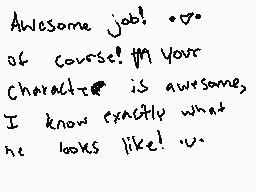 Awesome job! •v•
of course! your
character is awesome,
I know exactly what
he looks like! •v•